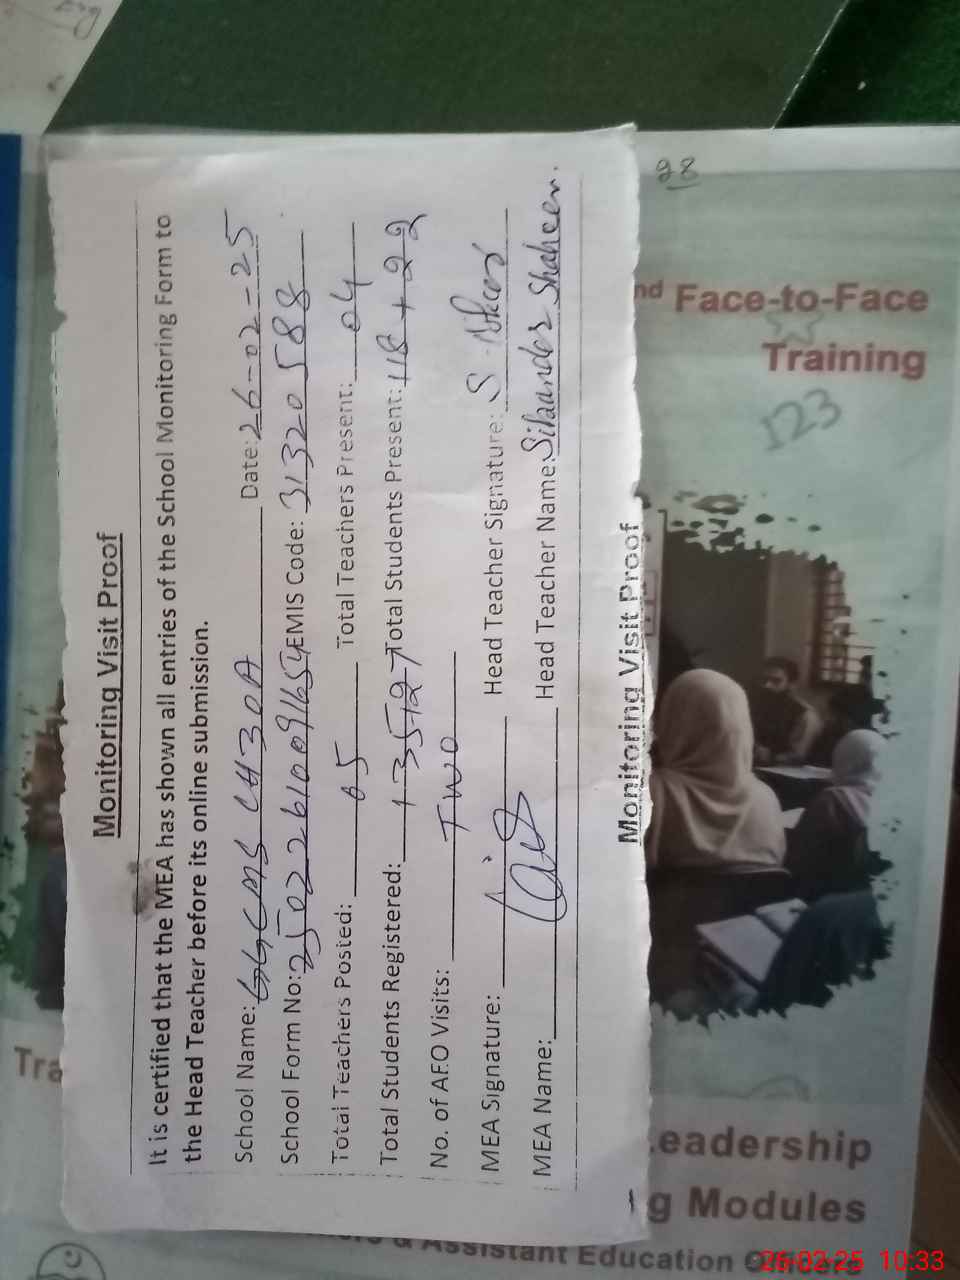 Monitoring Visit Proof
It is certified that the MEA has shown all entries of the School Monitoring Form to
the Head Teacher before its online submission.
School Name: GGCMS CH30A Date: 26-02-25
School Form No: 25022610091654 EMIS Code: 31320588
Total Teachers Posted: 05 Total Teachers Present: 04
Total Students Registered: 135+27 Total Students Present: 118+22
No. of AEO Visits: Two
MEA Signature: Head Teacher Signature:
MEA Name: Head Teacher Name: Shaheen.
Monitoring Visit Proof
28
nd Face-to-Face
Training
123
Tra
eadership
g Modules
& Assistant Education
26-02-25 10:33